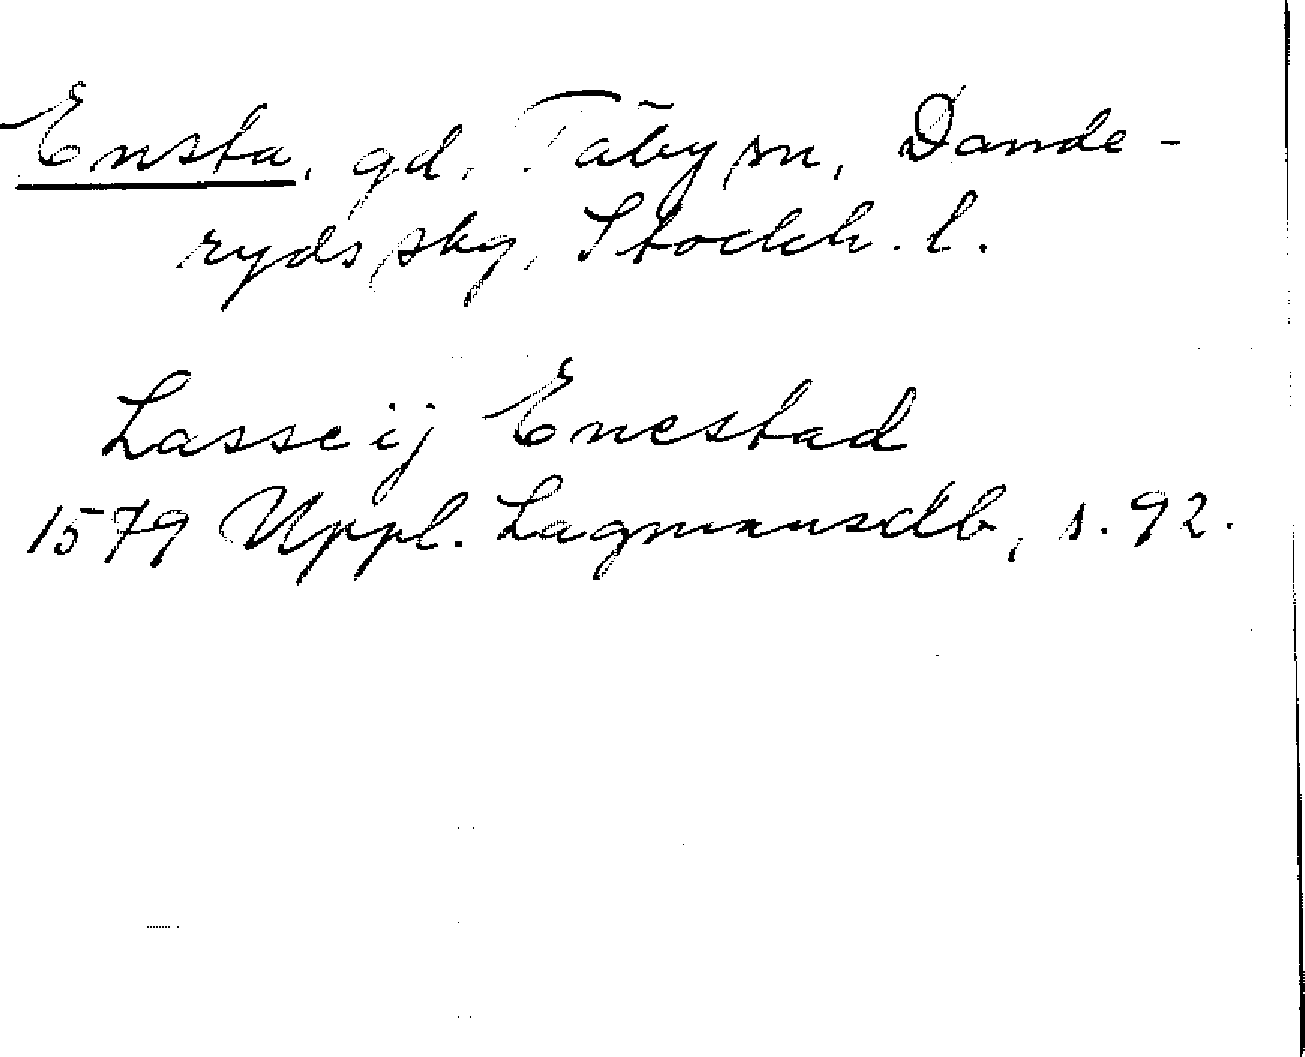 Ensta, gd, Täby sn, Dande-
ryds skg, Stockh. l.
Lasse ij Enestad
1579 Uppl. Lagmansdb, s. 92.